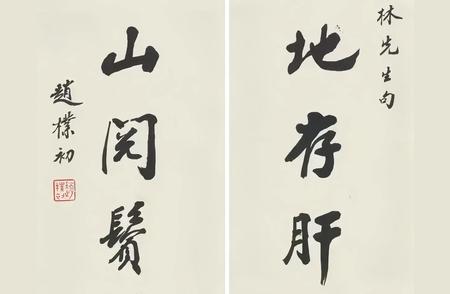 林先生句
地存肝
山阅鬓
趙樸初